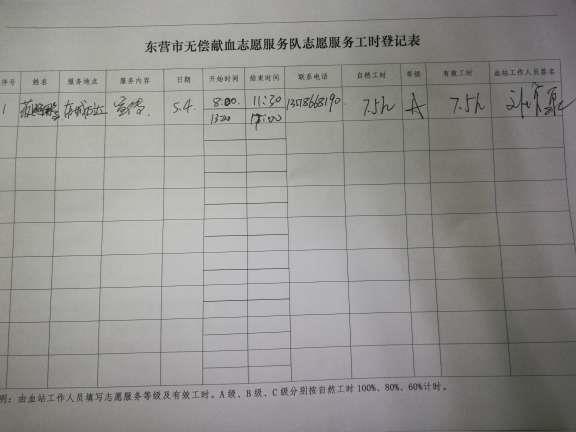 东营市无偿献血志愿服务队志愿服务工时登记表
序号 姓名 服务地点 服务内容 日期 开始时间 结束时间 联系电话 自然工时 等级 有效工时 血站工作人员签名
1 宣传 5.4 8:00 11:30 13518668190 7.5h A 7.5h
13:00 17:00
明：由血站工作人员填写志愿服务等级及有效工时。A级、B级、C级分别按自然工时100%、80%、60%计时。